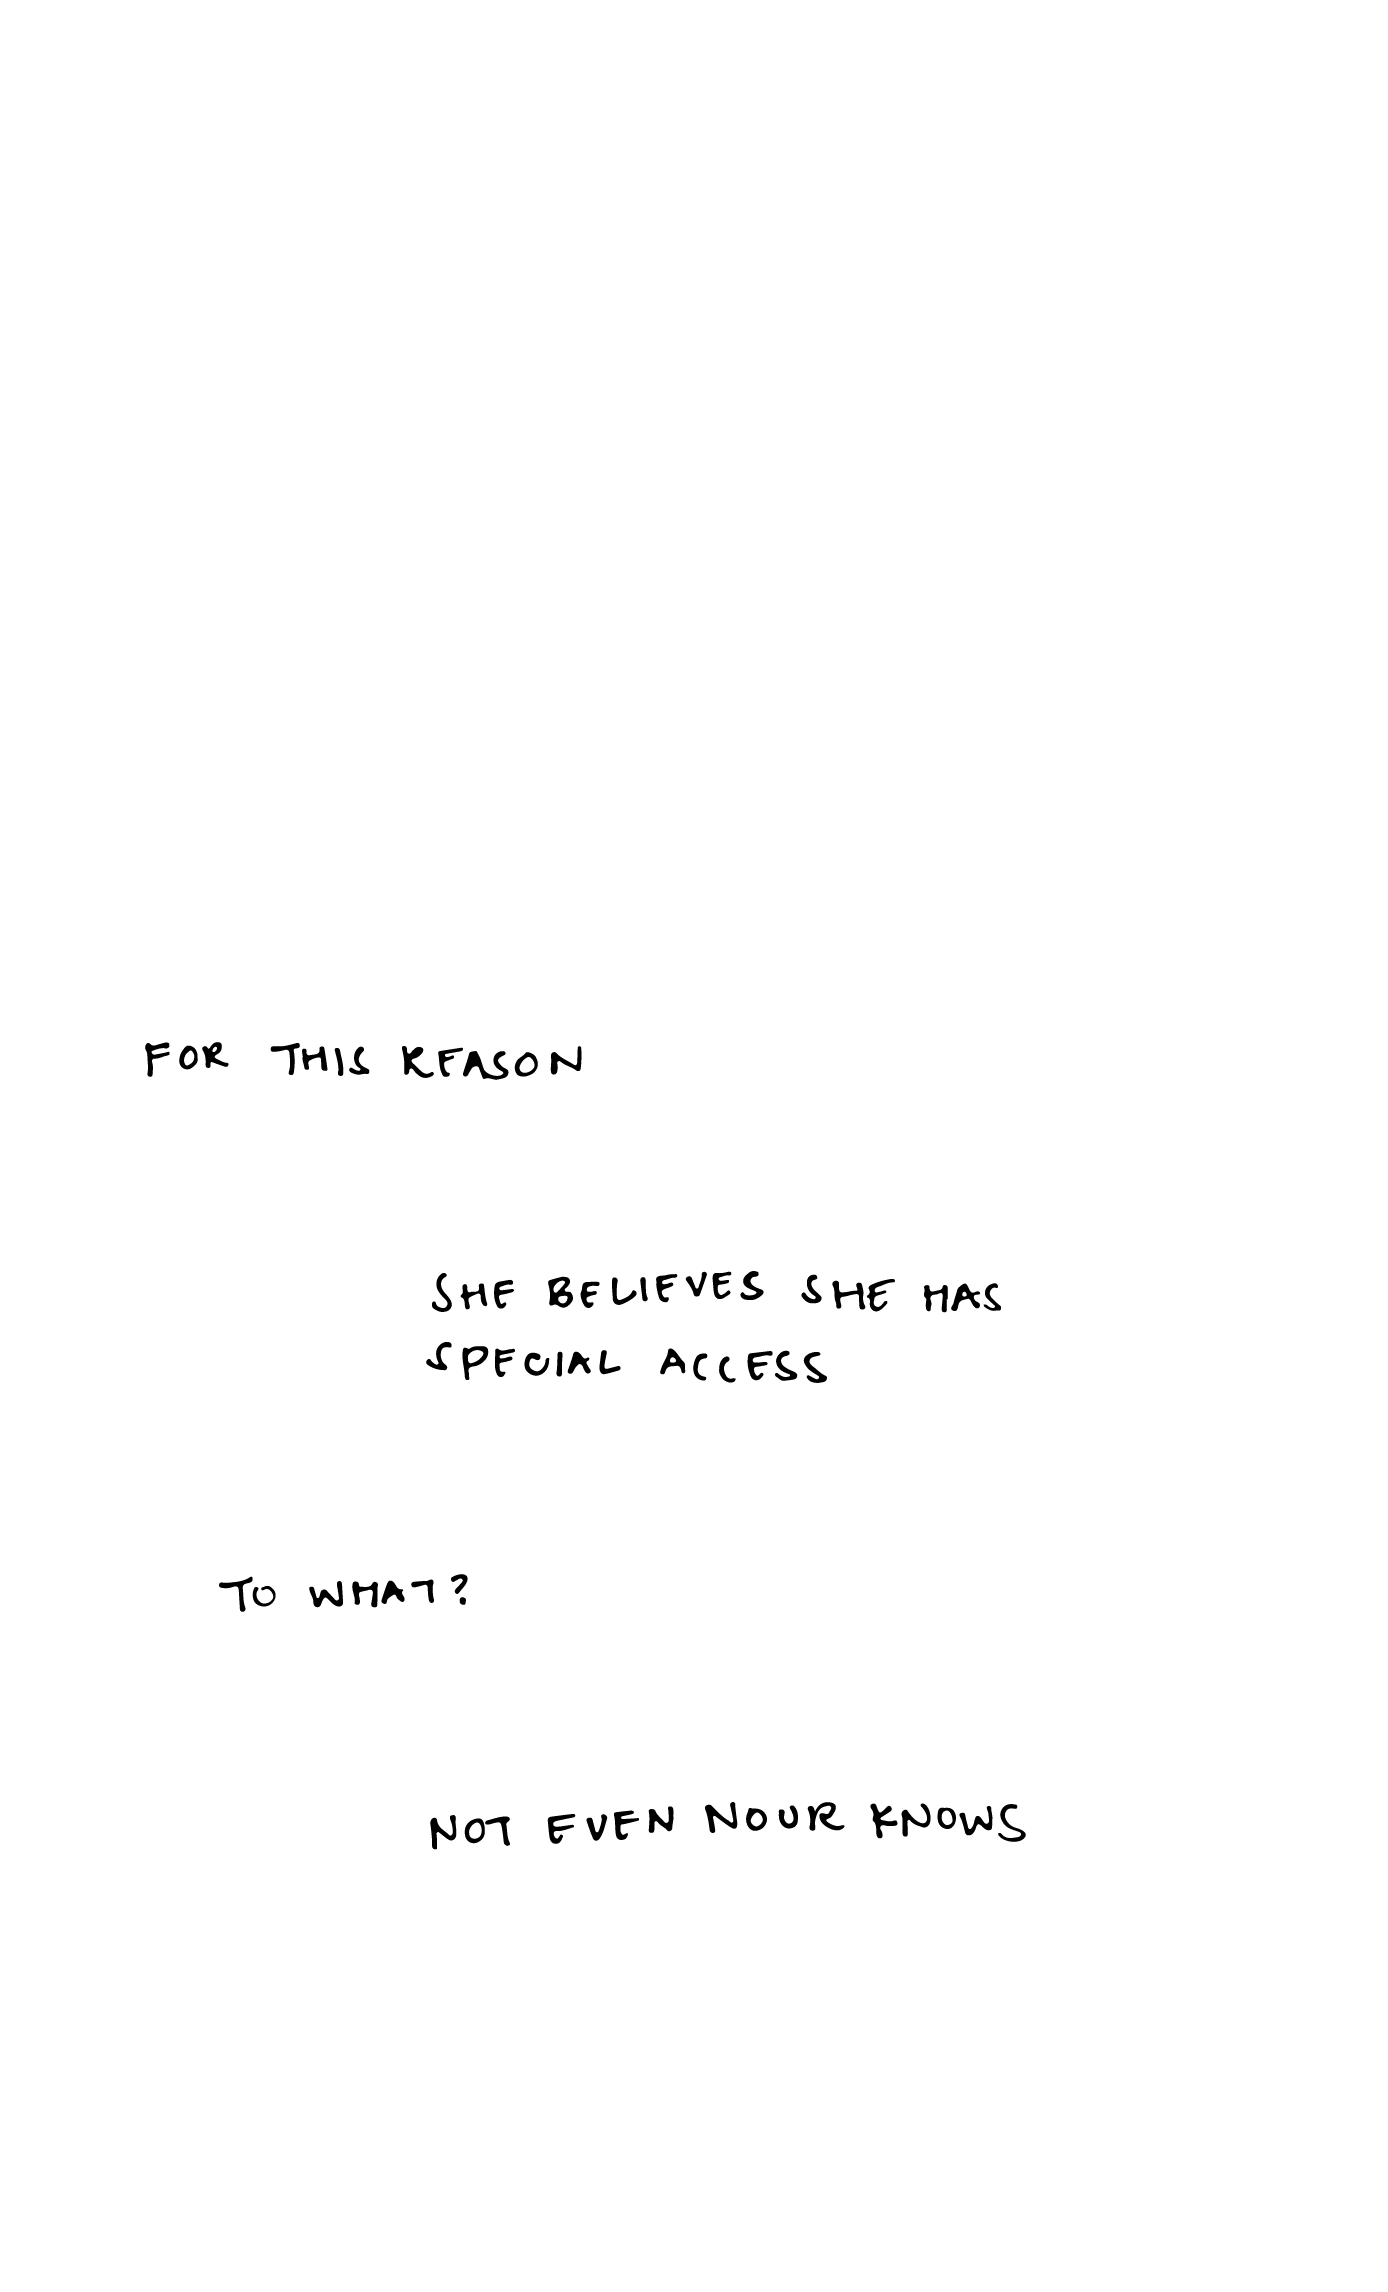 FOR THIS REASON
SHE BELIEVES SHE HAS
SPECIAL ACCESS
TO WHAT?
NOT EVEN NOUR KNOWS